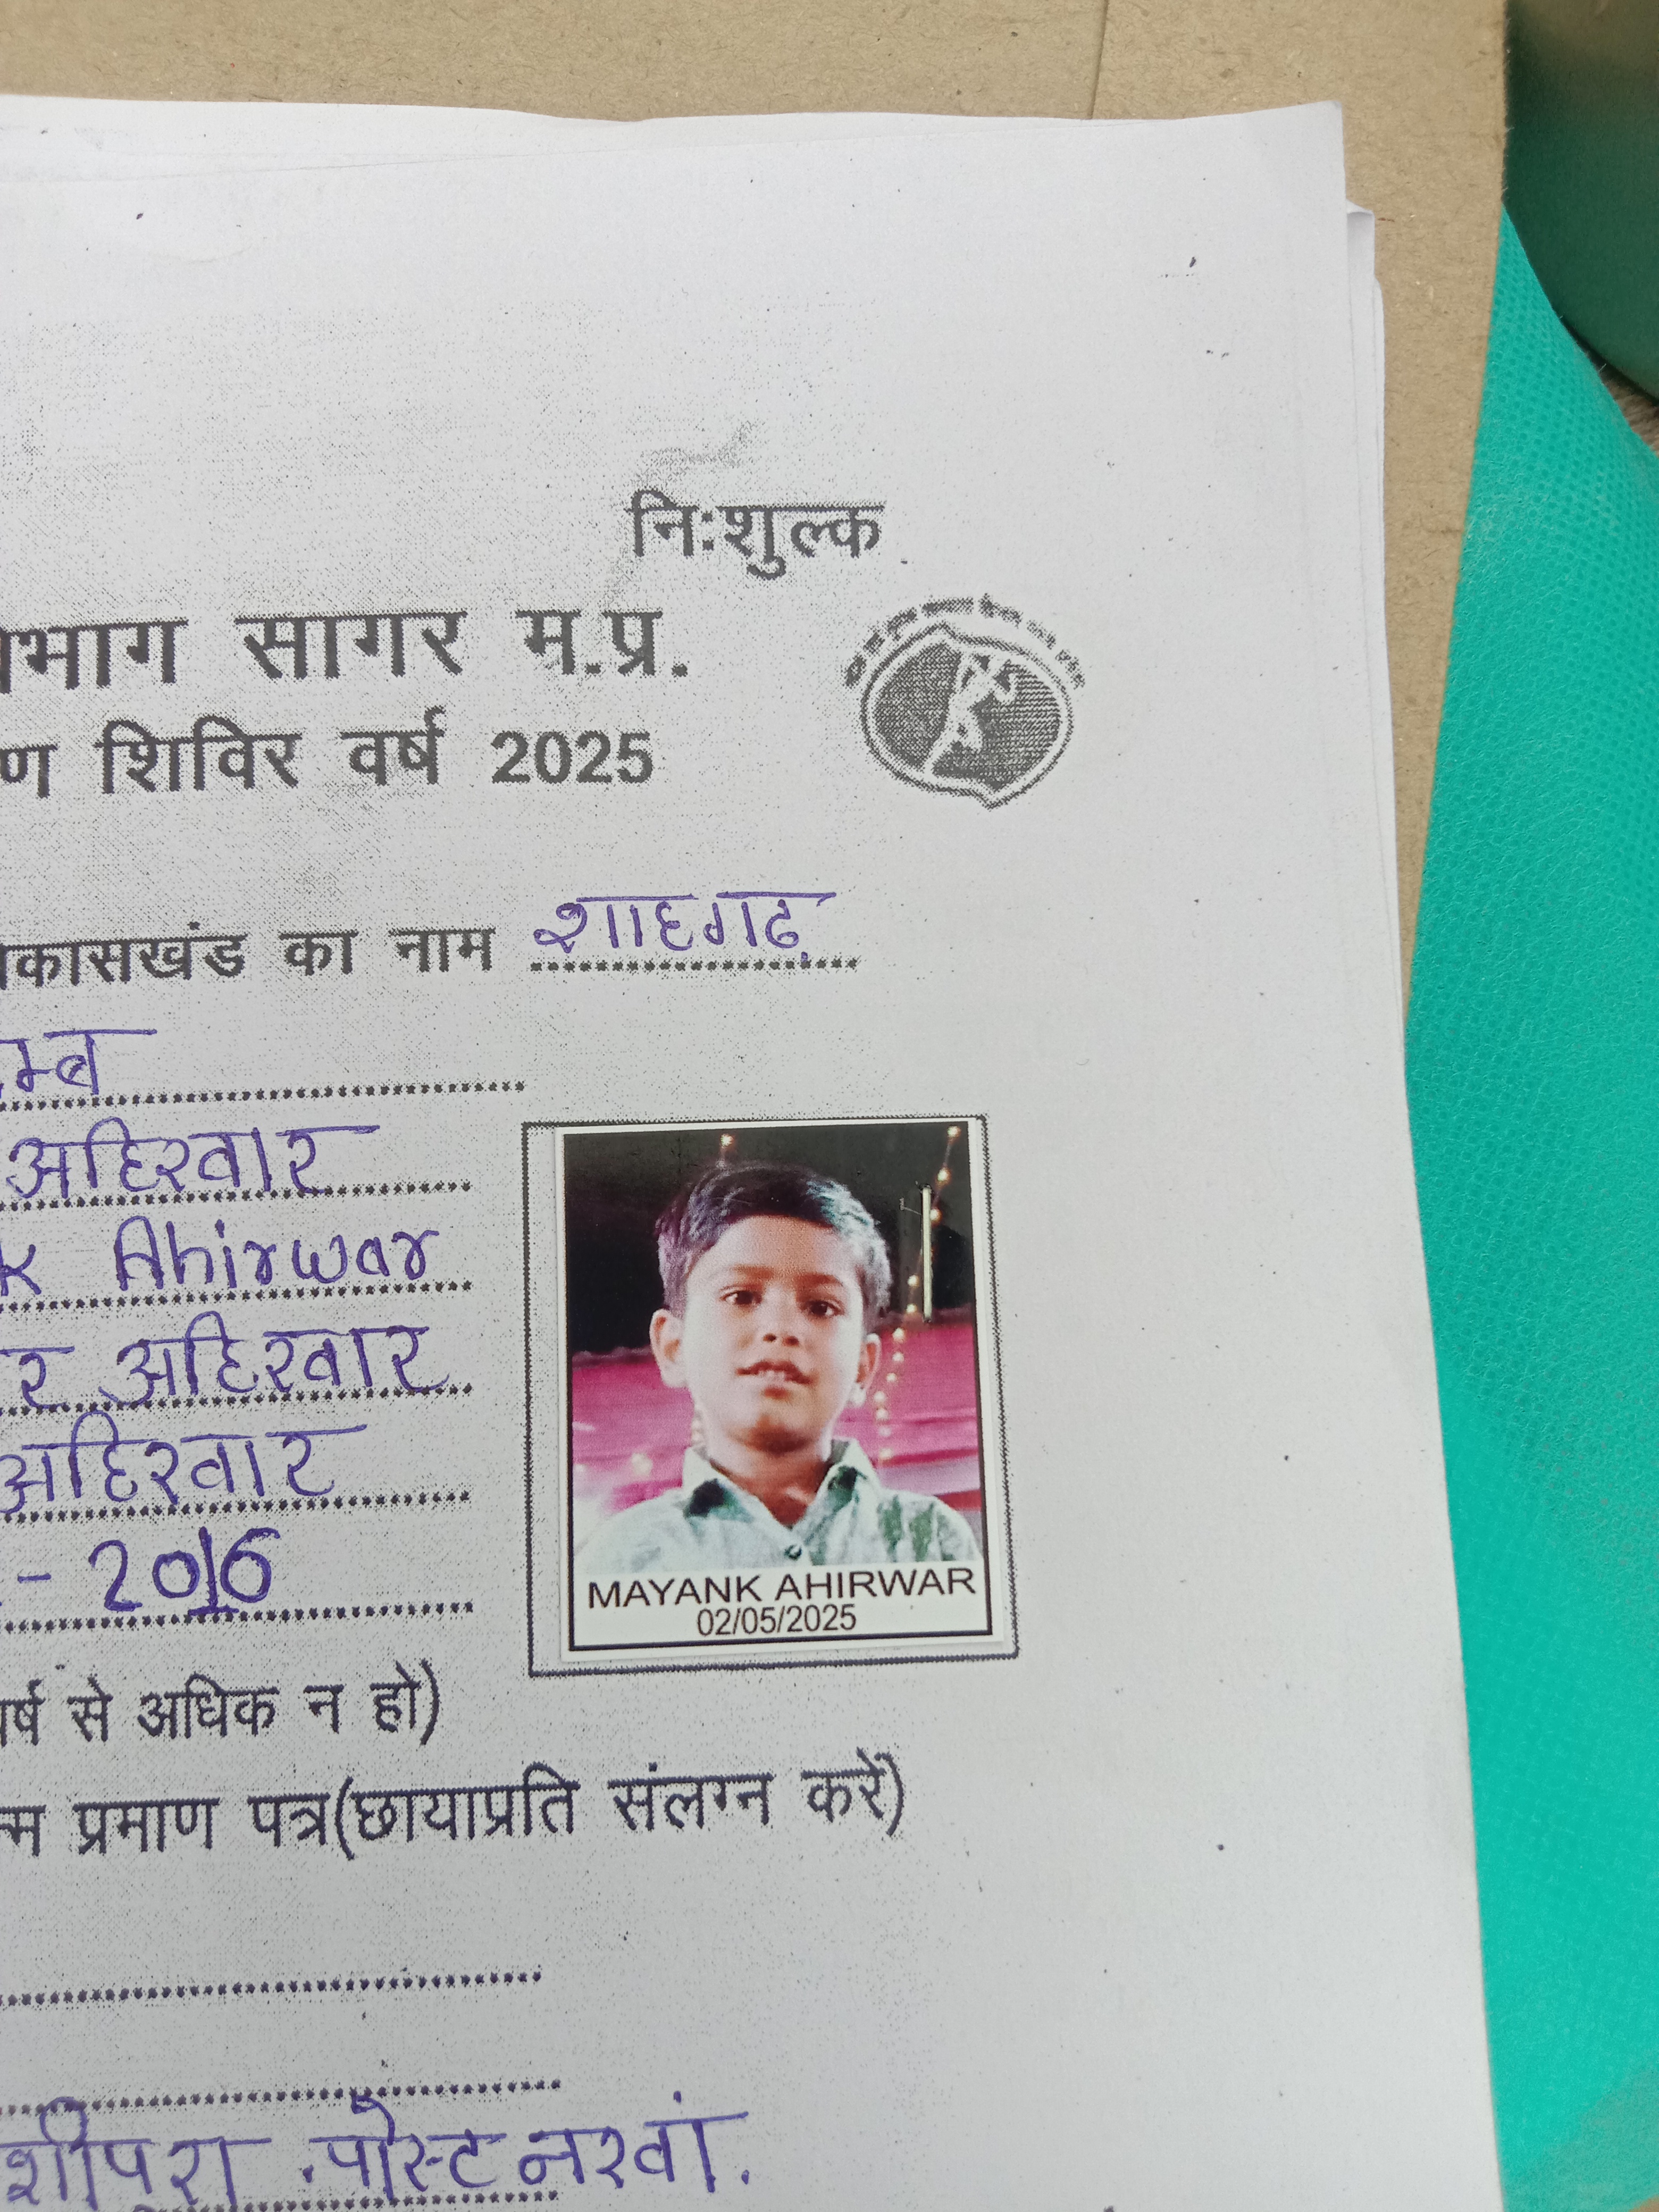 नि:शुल्क
सागर म.प्र.
शिविर वर्ष 2025
का नाम शाहगढ़
अहिरवार
Ahirwar
अहिरवार
अहिरवार
- 2016
MAYANK AHIRWAR
02/05/2025
से अधिक न हो)
प्रमाण पत्र(छायाप्रति संलग्न करें)
पोस्ट नरवां.